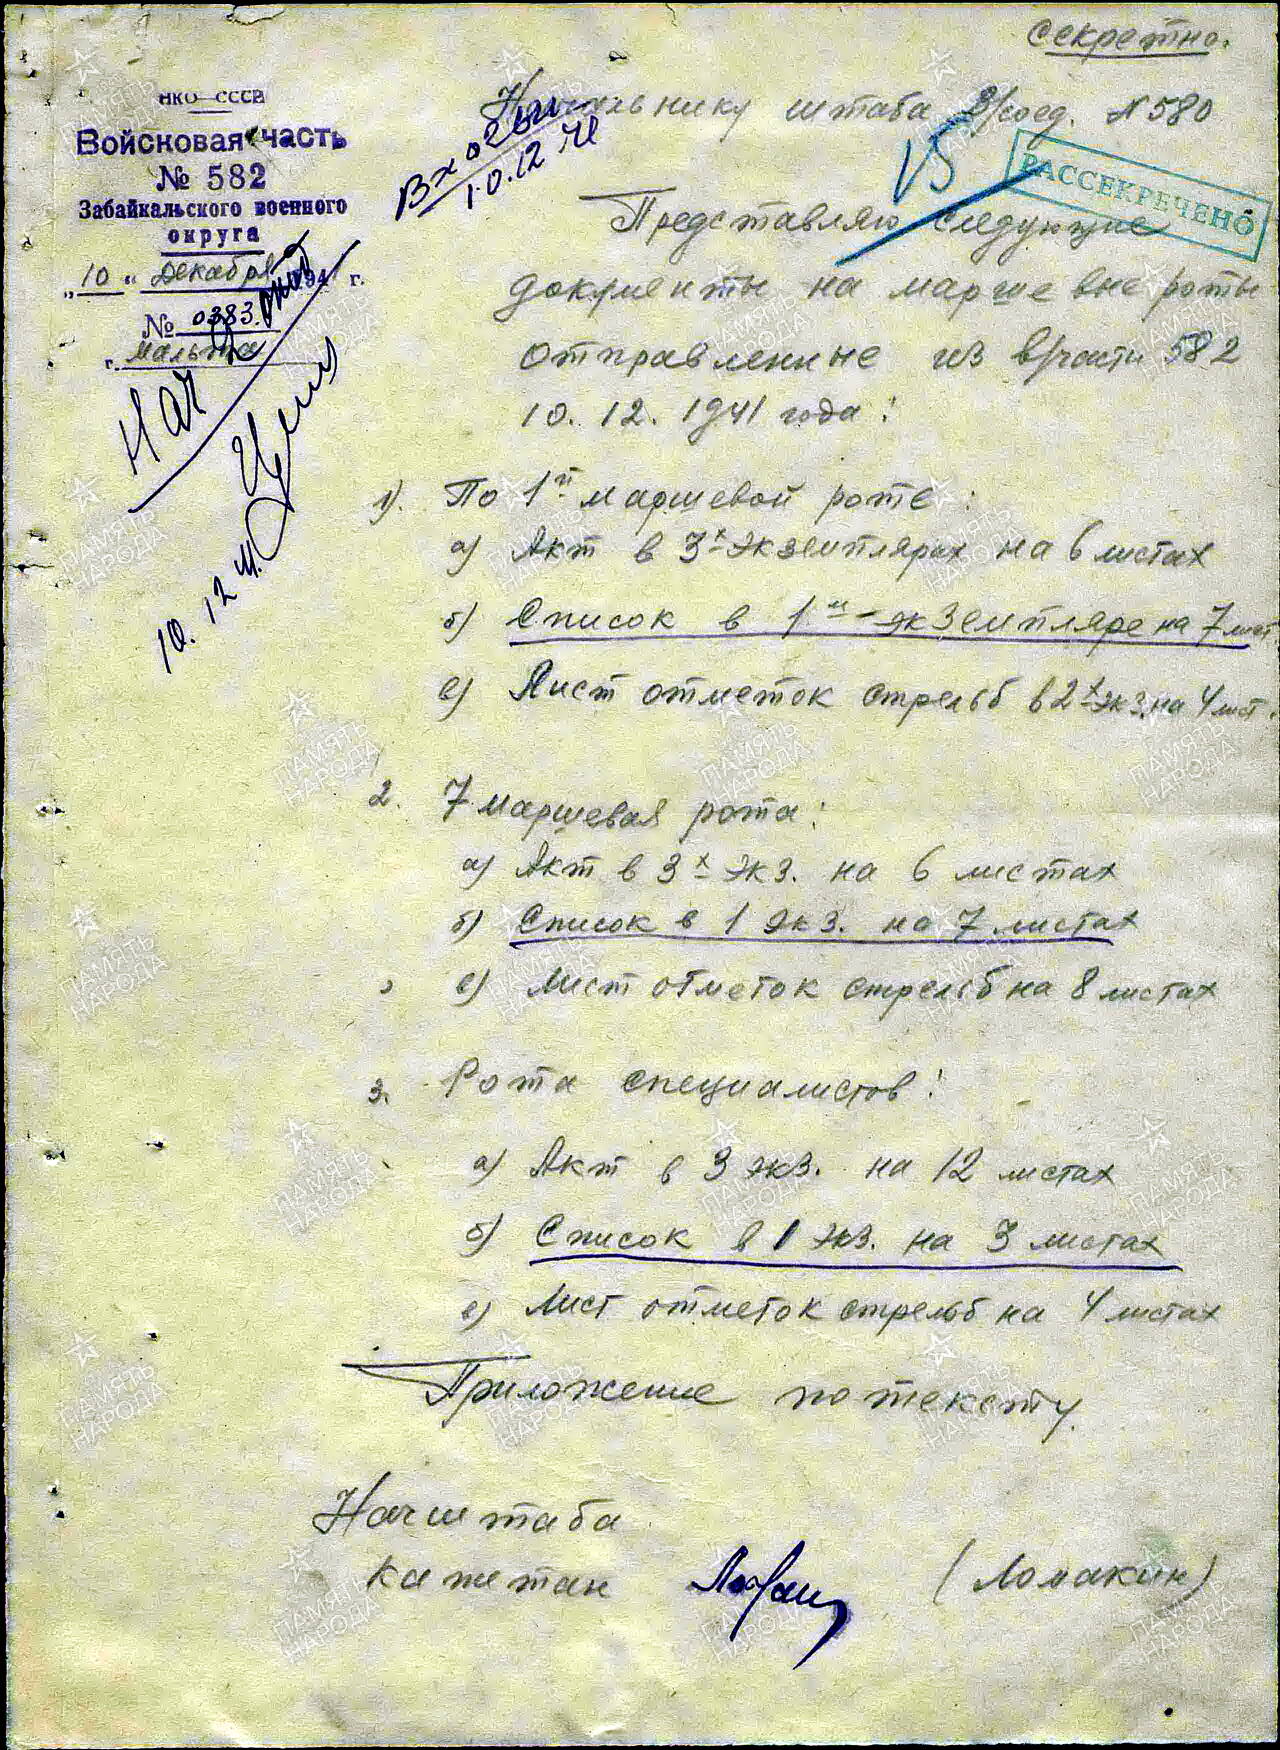 Секретно.
НКО-СССР
Войсковая часть
№ 582
Забайкальского военного
округа
"10" Декабря 1941 г.
№ 0383.
г. Мальта
Нач
10.12
Вход
10.12.41
15
РАССЕКРЕЧЕНО
Начальнику штаба в/соед. № 580
Представляю следующие
документы на маршевые роты
отправленные из в/части 582
10.12.1941 года:
1). По 1й маршевой роте:
а) Акт в 3х экземплярах на 6 листах
б) Список в 1м экземпляре на 7 лист.
в) Лист отметок стрельб в 2х экз. на 4 лист.
2. 7 маршевая рота:
а) Акт в 3х экз. на 6 листах
б) Список в 1 экз. на 7 листах
в) Лист отметок стрельб на 8 листах
3. Рота специалистов:
а) Акт в 3 экз. на 12 листах
б) Список в 1 экз. на 3 листах
в) Лист отметок стрельб на 4 листах
Приложение по тексту.
Начштаба
капитан (Ломакин)
ПАМЯТЬ
НАРОДА